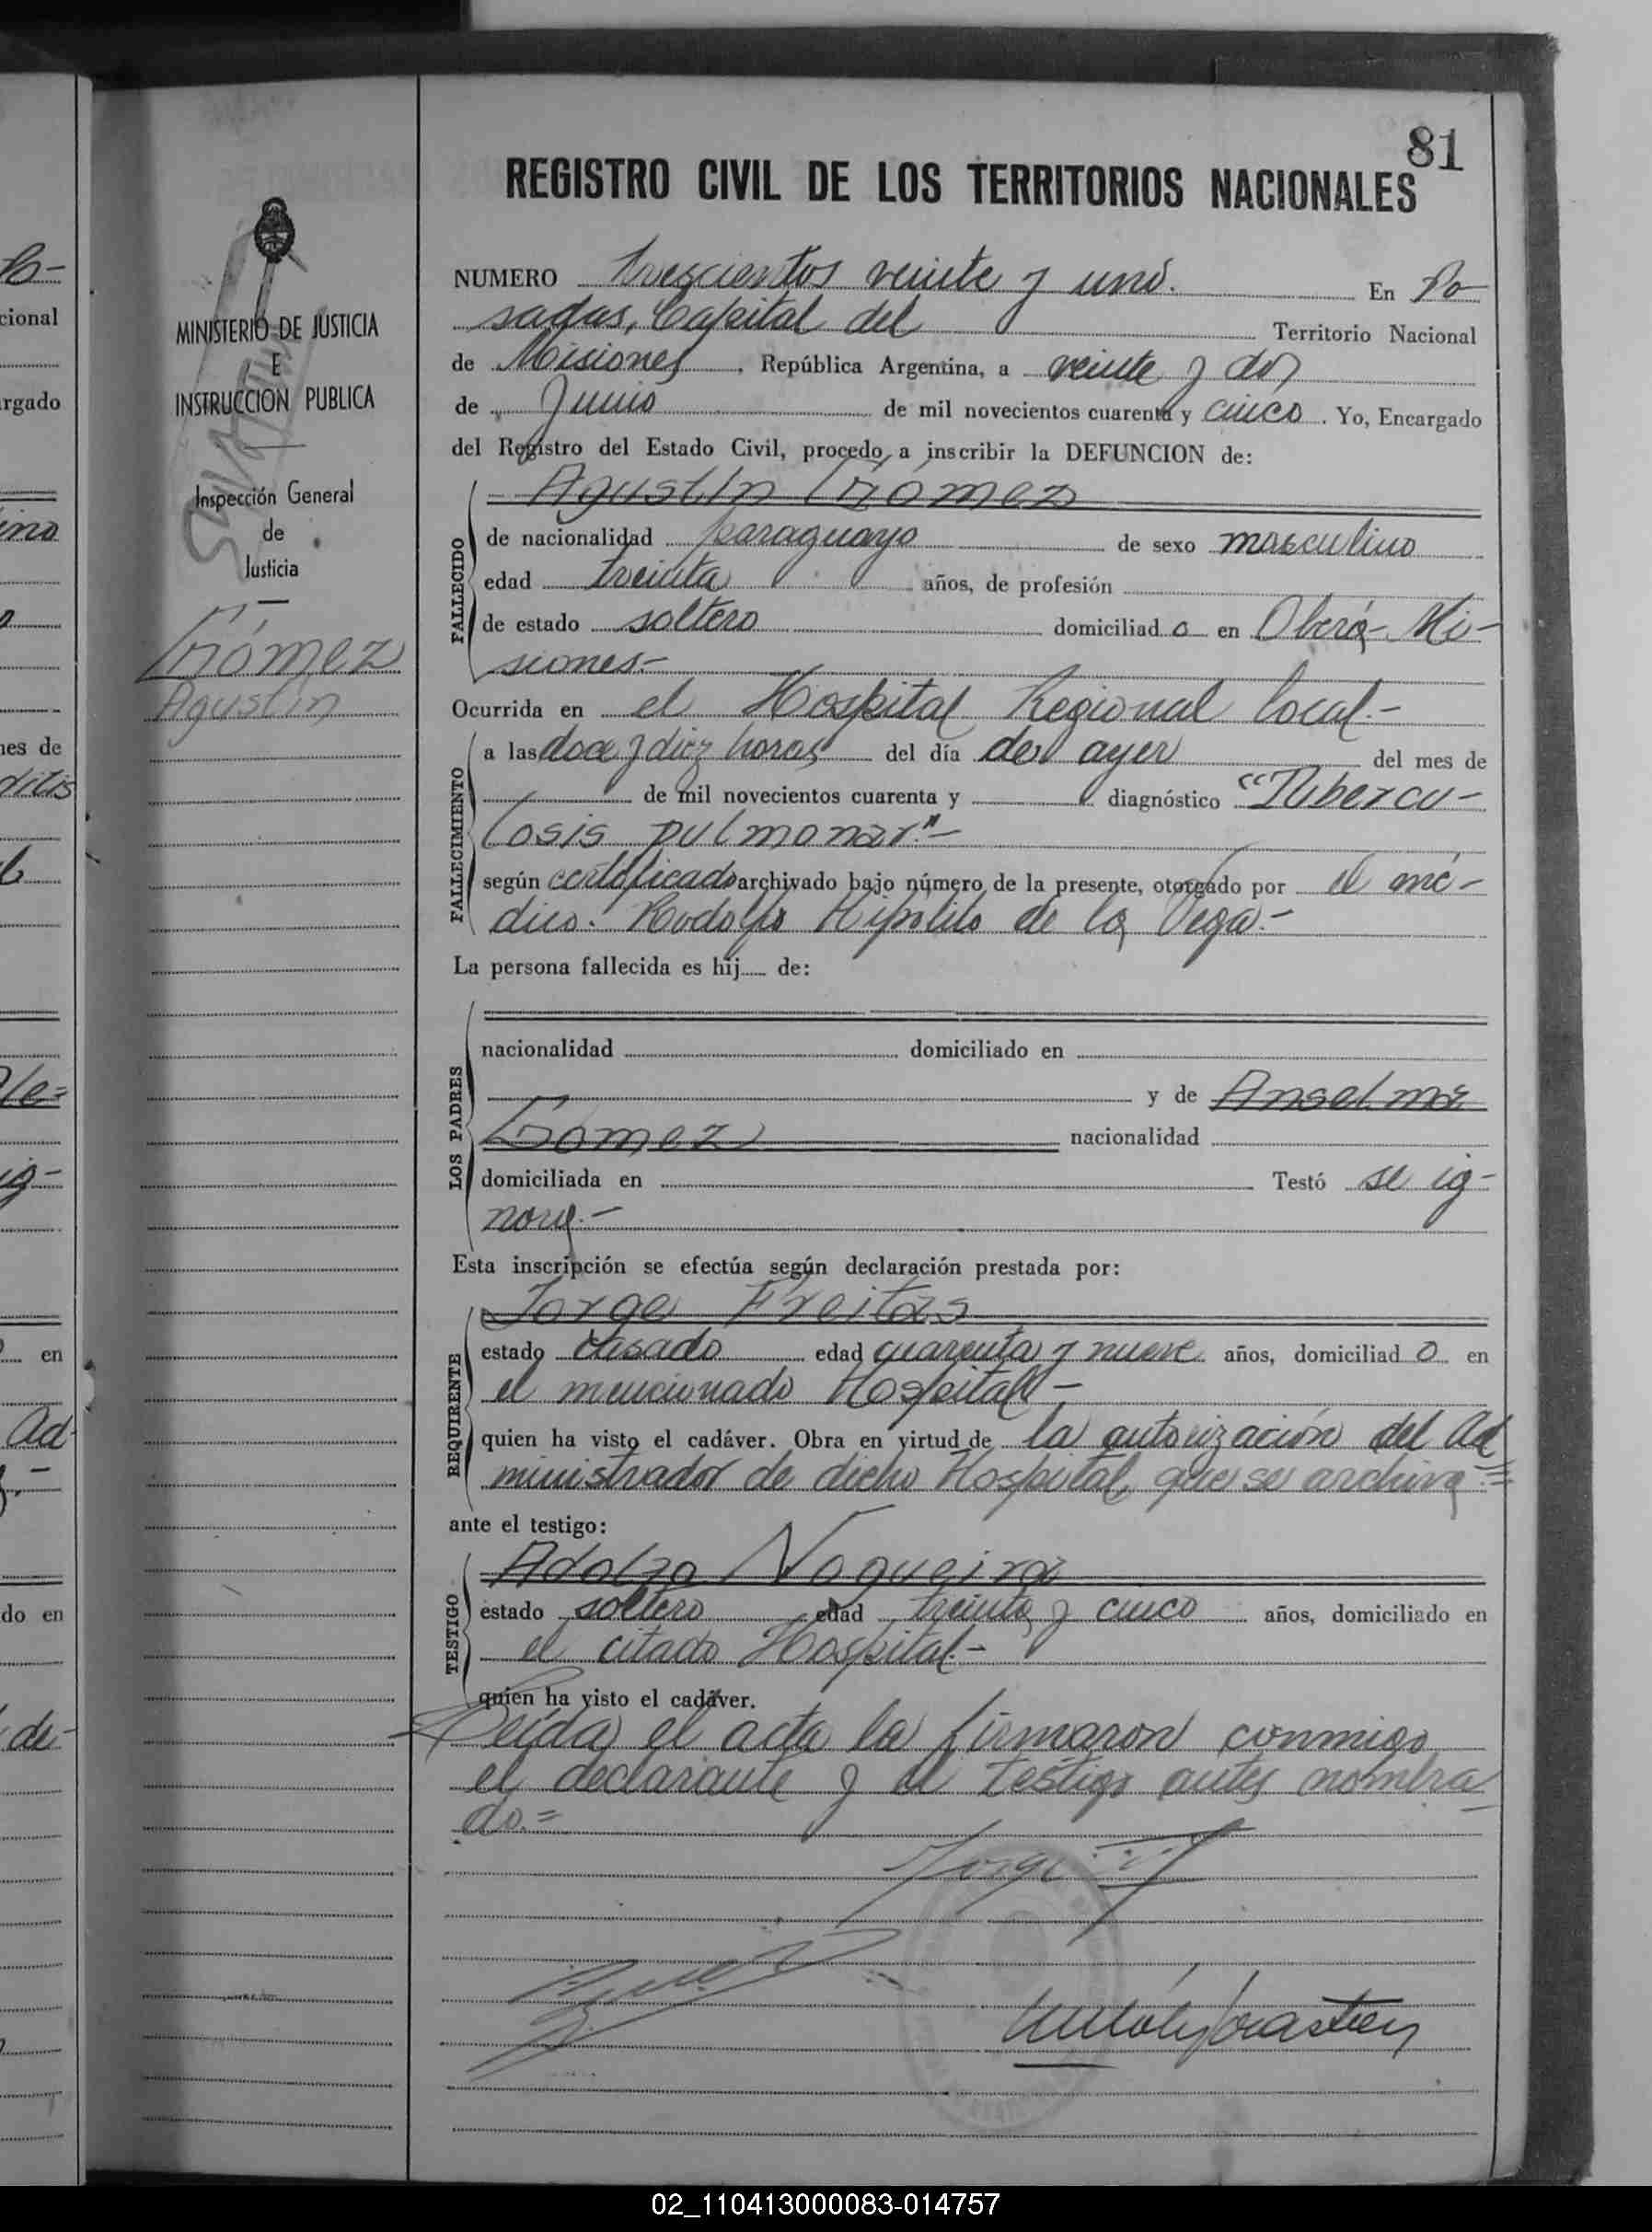 81
REGISTRO CIVIL DE LOS TERRITORIOS NACIONALES
MINISTERIO DE JUSTICIA
E
INSTRUCCION PUBLICA
Inspección General
de
Justicia
Gómez
Agustín
NUMERO trescientos veinte y uno. En Po-
sadas, Capital del Territorio Nacional
de Misiones, República Argentina, a veinte y dos
de Junio de mil novecientos cuarenta y cinco. Yo, Encargado
del Registro del Estado Civil, procedo a inscribir la DEFUNCION de:
Agustín Gómez
FALLECIDO
de nacionalidad paraguayo de sexo masculino
edad treinta años, de profesión
de estado soltero domiciliado en Oberá- Mi-
siones.-
Ocurrida en el Hospital Regional local.-
FALLECIMIENTO
a las doce y diez horas del día de ayer del mes de
de mil novecientos cuarenta y diagnóstico "Tubercu-
losis pulmonar".-
según certificado archivado bajo número de la presente, otorgado por el mé-
dico. Rodolfo Hipólito de la Vega.-
La persona fallecida es hij de:
LOS PADRES
nacionalidad domiciliado en
y de Anselma
Gómez nacionalidad
domiciliada en Testó se ig-
nora.-
Esta inscripción se efectúa según declaración prestada por:
Jorge Freitas
REQUIRENTE
estado casado edad cuarenta y nueve años, domiciliado en
el mencionado Hospital.-
quien ha visto el cadáver. Obra en virtud de la autorización del Ad
ministrador de dicho Hospital, que se archiva.=
ante el testigo:
Adolfo Nogueira
TESTIGO
estado soltero edad treinta y cinco años, domiciliado en
el citado Hospital.-
quien ha visto el cadáver.
Leída el acta la firmaron conmigo
el declarante y el testigo antes nombra
do.=
Jorge
02_110413000083-014757